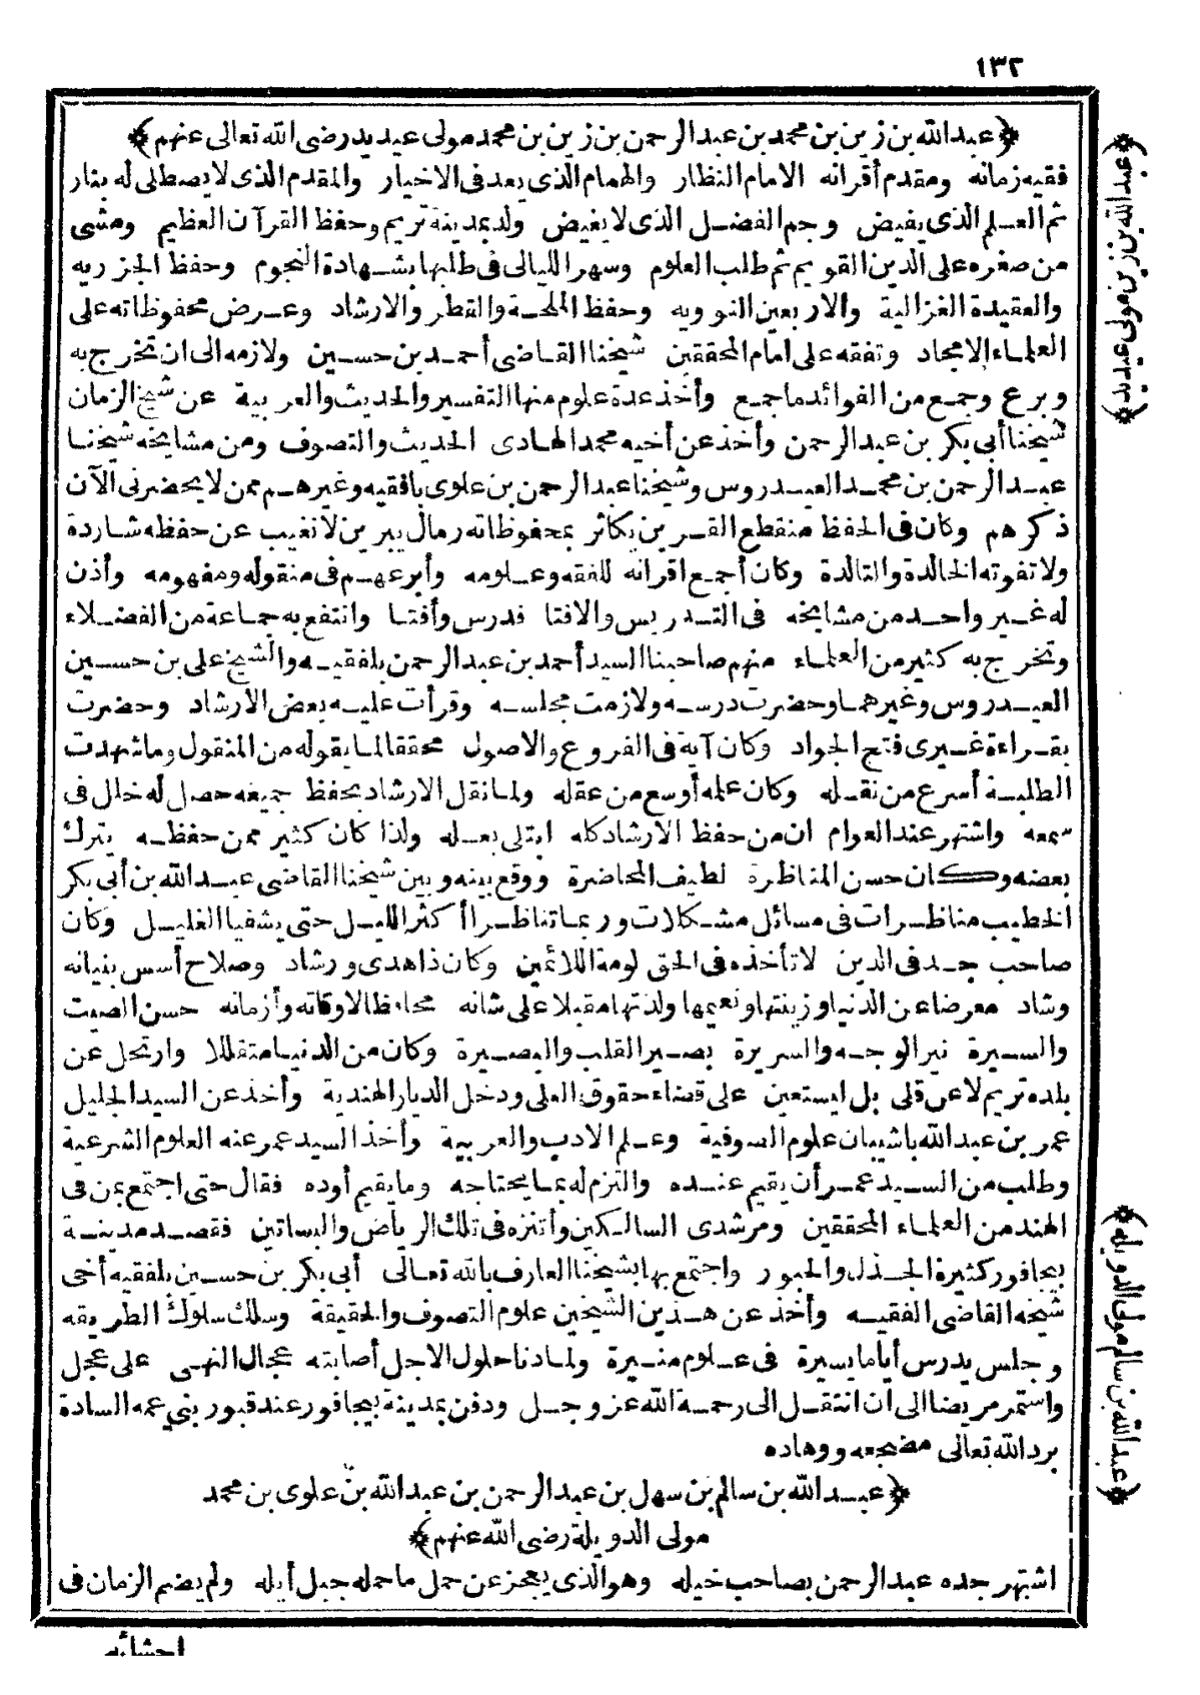 ١٣٢
﴿عبدالله بن زين بن محمد بن عبدالرحمن بن زين بن محمد مولى عيديد رضى الله تعالى عنهم﴾
﴿عبدالله بن زين مولى عيديد﴾
فقيه زمانه ومقدم أقرانه الامام النظار والهمام الذى يعد فى الاخيار والمقدم الذى لا يصطلى له بنار
ثم العلم الذى يفيض وجم الفضل الذى لا يغيض ولد بمدينة تريم وحفظ القرآن العظيم ومشى
من صغره على الدين القويم ثم طلب العلوم وسهر الليالى فى طلبها بشهادة النجوم وحفظ الجزريه
والعقيدة الغزالية والاربعين النوويه وحفظ الملحة والقطر والارشاد وعرض محفوظاته على
العلماء الامجاد وتفقه على امام المحققين شيخنا القاضى أحمد بن حسين ولازمه الى ان تخرج به
وبرع وجمع من الفوائد ما جمع وأخذ عدة علوم منها التفسير والحديث والعربية عن شيخ الزمان
شيخنا أبى بكر بن عبدالرحمن وأخذ عن أخيه محمد الهادى الحديث والتصوف ومن مشايخه شيخنا
عبدالرحمن بن محمد العيدروس وشيخنا عبدالرحمن بن علوى بافقيه وغيرهم ممن لا يحضرنى الآن
ذكرهم وكان فى الحفظ منقطع القرين يكاثر بمحفوظاته رمال يبرين لا تغيب عن حفظه شاردة
ولا تفوته الخالدة والتالدة وكان أجمع اقرانه للفقه وعلومه وأبرعهم فى منقوله ومفهومه وأذن
له غير واحد من مشايخه فى التدريس والافتا فدرس وأفتا وانتفع به جماعة من الفضلاء
وتخرج به كثير من العلماء منهم صاحبنا السيد أحمد بن عبدالرحمن بلفقيه والشيخ على بن حسين
العيدروس وغيرهما وحضرت درسه ولازمت مجلسه وقرأت عليه بعض الارشاد وحضرت
بقراءة غيرى فتح الجواد وكان آية فى الفروع والاصول محققا لما يقوله من المنقول وما شهدت
الطلبة أسرع من نقله وكان علمه أوسع من عقله ولما نقل الارشاد بحفظ جميعه حصل له خلل فى
سمعه واشتهر عند العوام ان من حفظ الارشاد كله ابتلى بعله ولذا كان كثير ممن حفظه يترك
بعضه وكان حسن المناظرة لطيف المحاضرة ووقع بينه وبين شيخنا القاضى عبدالله بن أبى بكر
الخطيب مناظرات فى مسائل مشكلات وربما تناظرا أكثر الليل حتى يشفيا الغليل وكان
صاحب جد فى الدين لا تأخذه فى الحق لومة اللائمين وكان ذا هدى ورشاد وصلاح أسس بنيانه
وشاد معرضا عن الدنيا وزينتها ونعيمها ولذتها مقبلا على شانه محافظا لاوقاته وأزمانه حسن الصيت
والسيرة نير الوجه والسريرة بصير القلب والبصيرة وكان من الدنيا متقللا وارتحل عن
بلده تريم لا عن قلى بل ليستعين على قضاء حقوق العلى ودخل الديار الهندية وأخذ عن السيد الجليل
عمر بن عبدالله باشيبان علوم الصوفية وعلم الادب والعربية وأخذ السيد عمر عنه العلوم الشرعية
وطلب من السيد عمر أن يقيم عنده والتزم له بما يحتاجه وما يقيم أوده فقال حتى اجتمع بمن فى
الهند من العلماء المحققين ومرشدى السالكين وأتنزه فى تلك الرياض والبساتين فقصد مدينة
بيجافور كثيرة الجذل والحبور واجتمع بها بشيخنا العارف بالله تعالى أبى بكر بن حسين بلفقيه أخى
شيخه القاضى الفقيه وأخذ عن هذين الشيخين علوم التصوف والحقيقة وسلك سلوك الطريقه
وجلس يدرس أياما يسيرة فى علوم منيرة ولما دنا حلول الاجل أصابته عجال النهى على عجل
واستمر مريضا الى ان انتقل الى رحمة الله عز وجل ودفن بمدينة بيجافور عند قبور بنى عمه السادة
برد الله تعالى مضجعه ووهاده
﴿عبدالله بن سالم بن سهل بن عبدالرحمن بن عبدالله بن علوى بن محمد
مولى الدويلة رضى الله عنهم﴾
﴿عبدالله بن سالم مولى الدويله﴾
اشتهر جده عبدالرحمن بصاحب خيله وهو الذى يعجز عن حمل ما حمله جبل أيله ولم يضم الزمان فى
احشائه